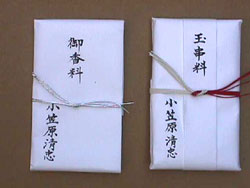 御香料
小笠原清忠
玉串料
小笠原清忠